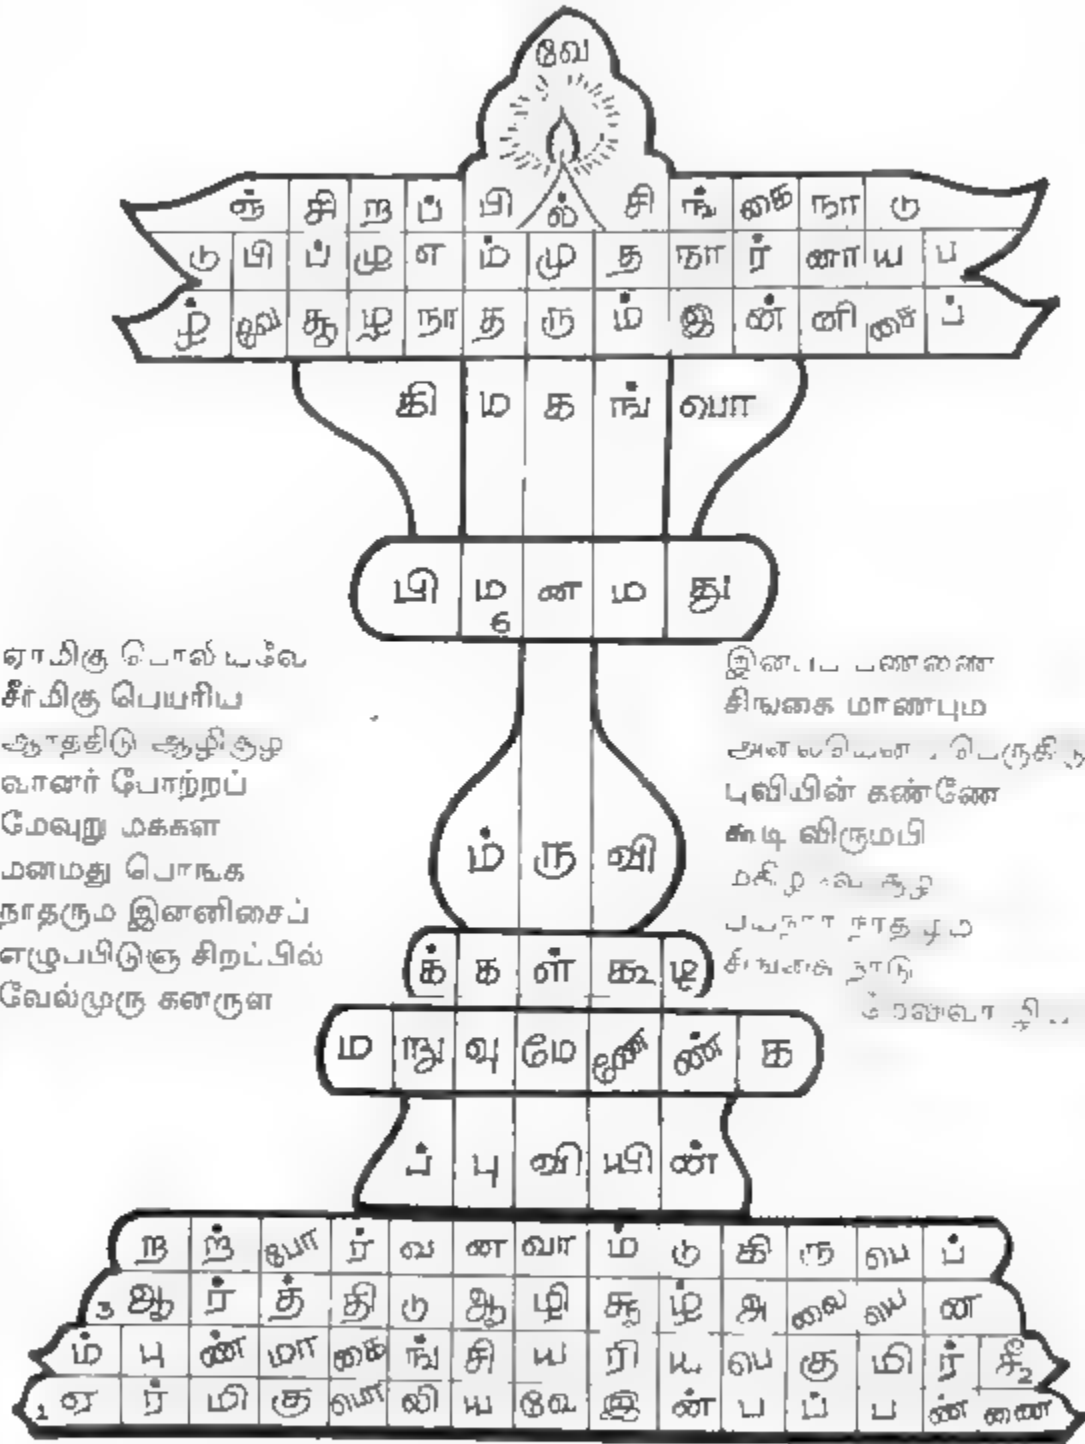 வே
ஞ் சி ற ப் பி ல் சி ங் கை நா டு
டு பி ப் மு எ ம் மு த நா ர் னா ய ப
ழ் வே சூ ழ நா த ரு ம் இ ன் னி சை ப்
கி ம க ங் பொ
பி ம ன ம து
6
ம் ரு வி
க் க ள் கூ டி
ம று வு மே ணே ண் க
ப் பு வி யி ன்
ற ற் போ ர் வ ன வா ம் டு கி ரு பெ ப்
3 ஆ ர் த் தி டு ஆ ழி சூ ழ் அ லை யெ ன
ம் பு ண் மா கை ங் சி ய ரி ய பெ கு மி ர் சீ 2
1 ஏ ர் மி கு பொ லி ய வே இ ன் ப ப் ப ண் ணை
ஏாமிகு பொலியவே
சீர்மிகு பெயரிய
ஆாததிடு ஆழிசூழ
வானர் போற்றப்
மேவுறு மக்கள
மனமது பொஙக
நாதரும இனனிசைப்
எழுபபிடுஞ சிறப்பில்
வேல்முரு கனருள
இனபப பணணை
சிஙகை மாணபும
பெருகிடு
புவியின் கண்ணே
கூடி விருமபி
மகிழ வே சூழ
நாதமும
சிஙகை நாடு